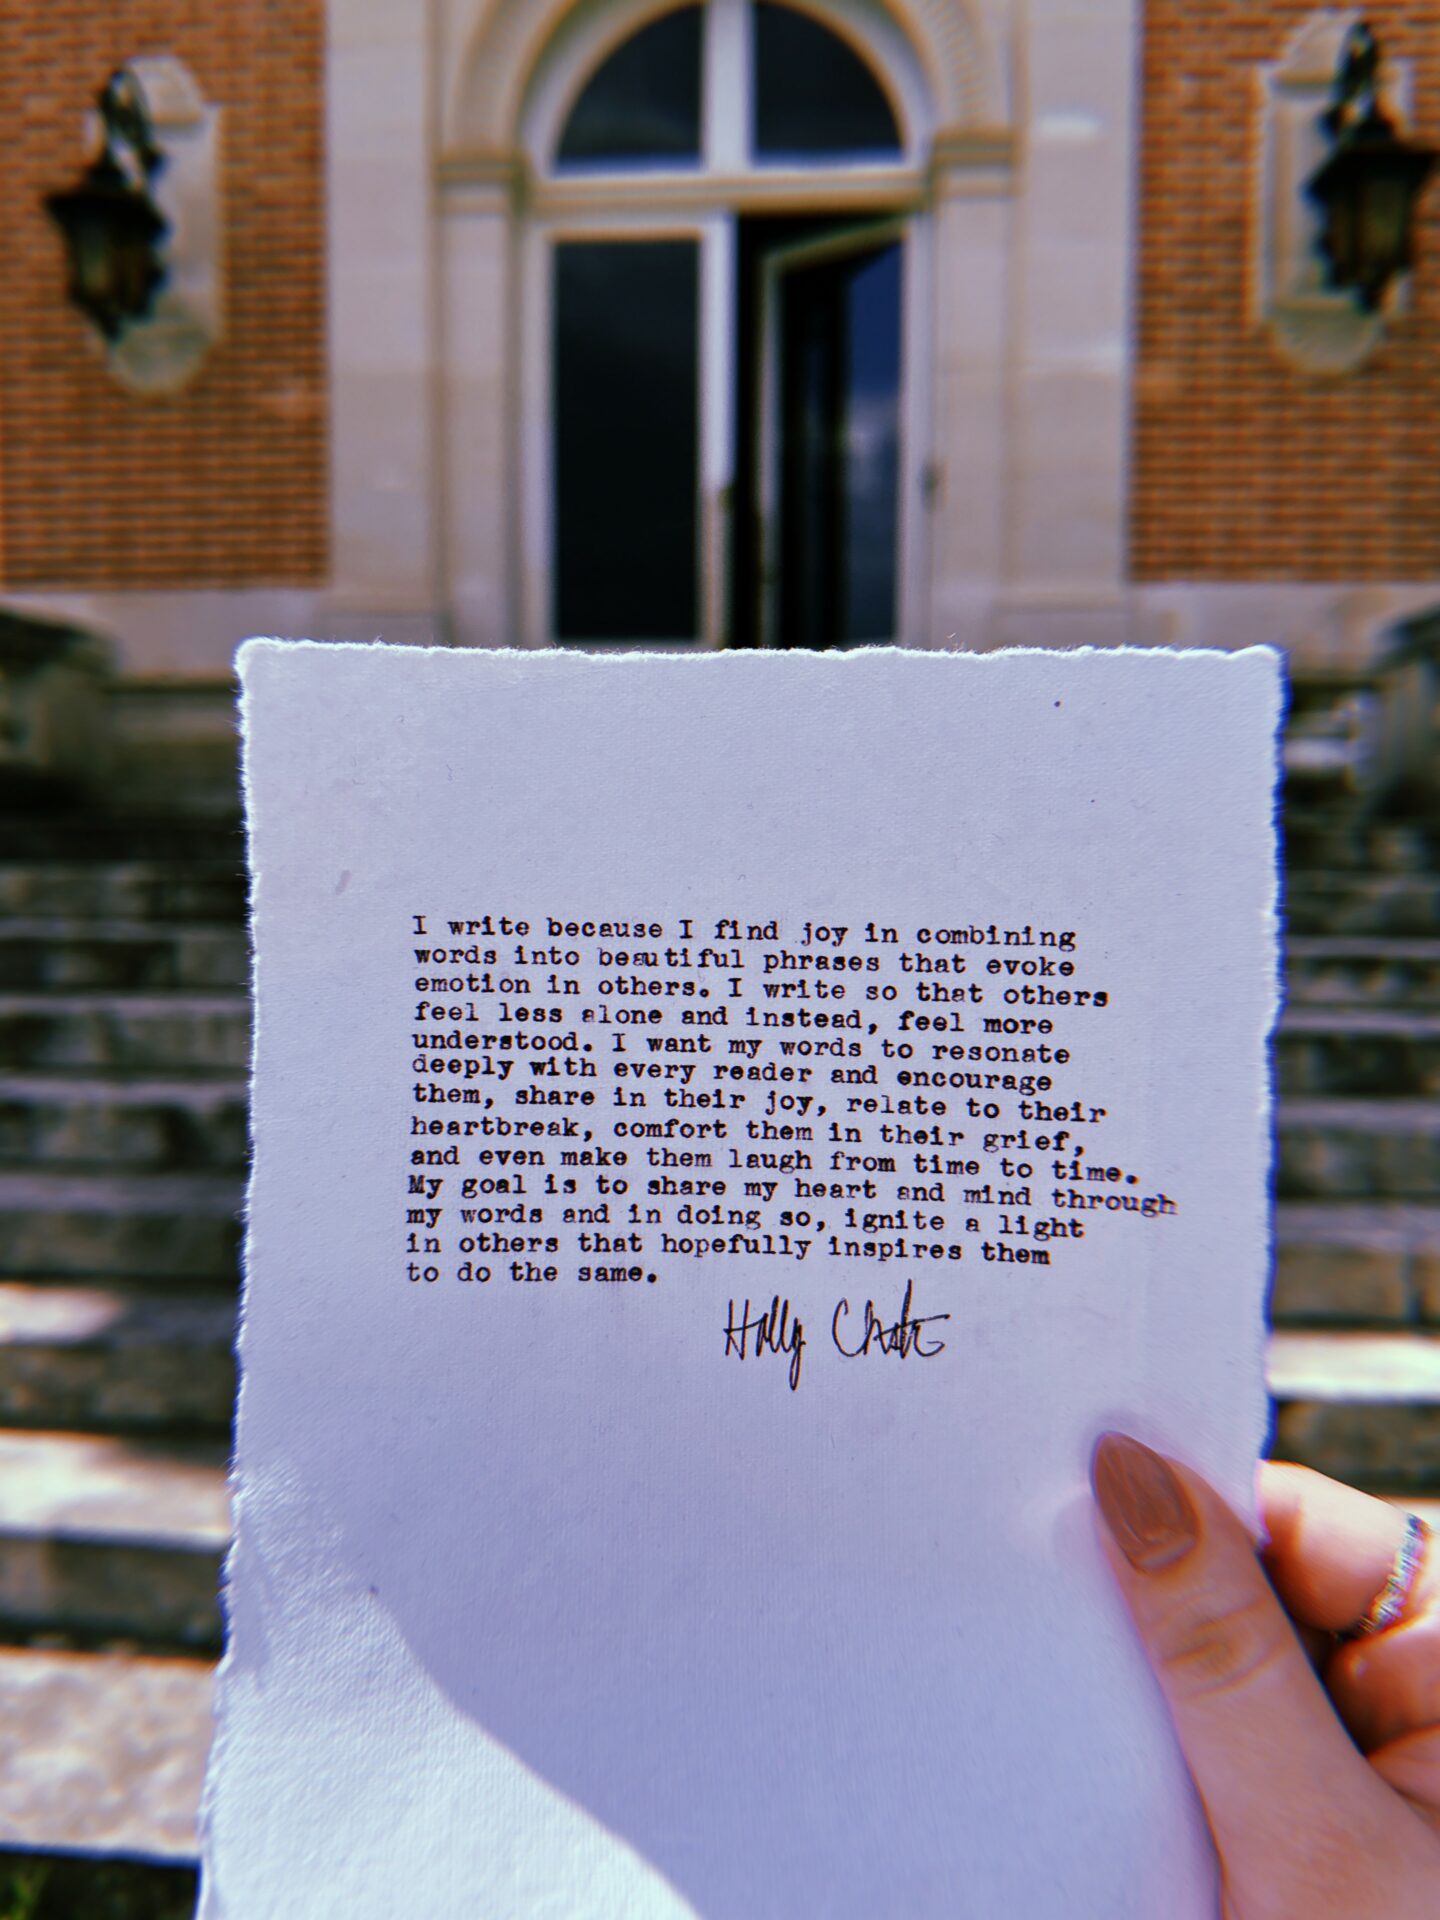 I write because I find joy in combining
words into beautiful phrases that evoke
emotion in others. I write so that others
feel less alone and instead, feel more
understood. I want my words to resonate
deeply with every reader and encourage
them, share in their joy, relate to their
heartbreak, comfort them in their grief,
and even make them laugh from time to time.
My goal is to share my heart and mind through
my words and in doing so, ignite a light
in others that hopefully inspires them
to do the same.
Holly